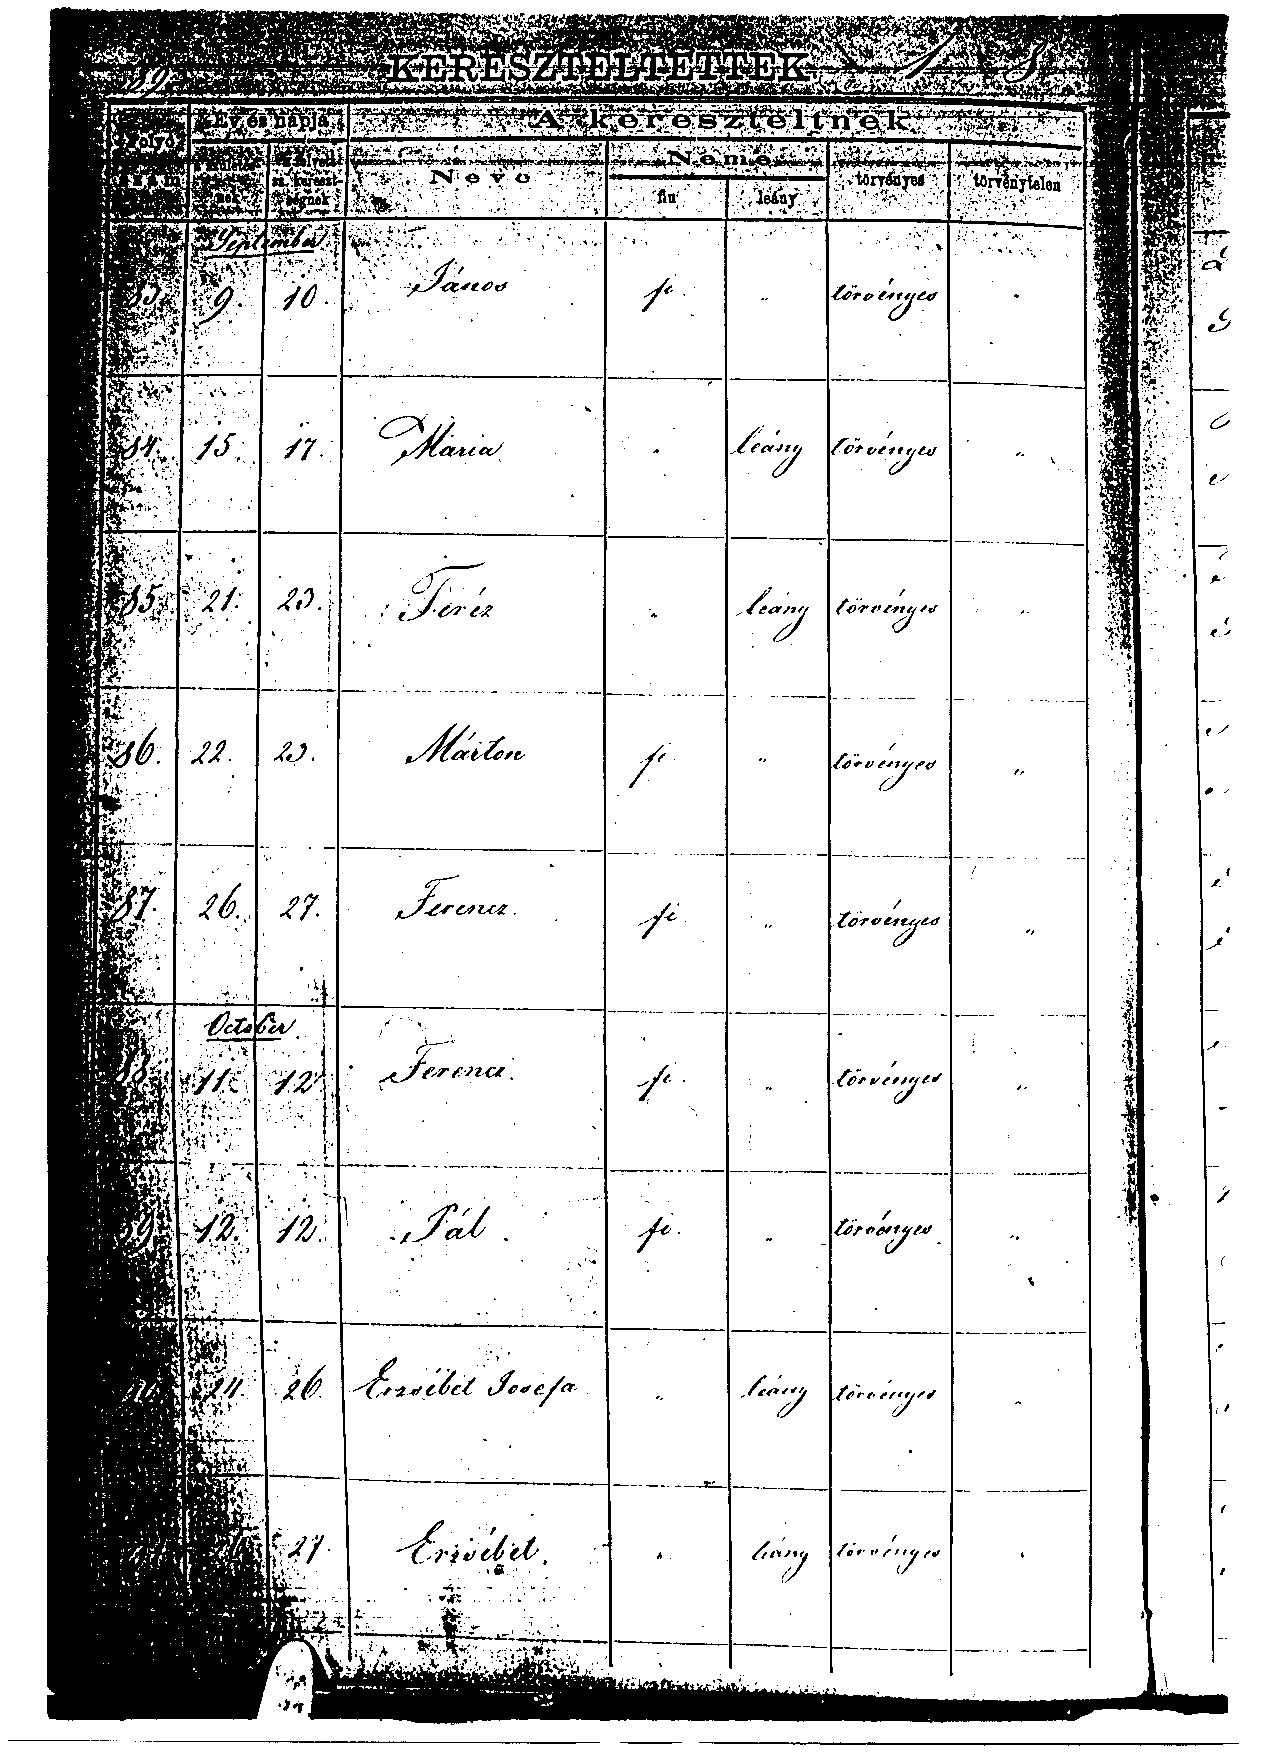 89. KERESZTELTETTEK 1 8
Folyó szám Év és napja A kereszteltnek
Neve Neme törvényes törvénytelen
sz. kereszt-
ségnek fiu leány
September
83. 9. 10. János fi „ törvényes „
84. 15. 17. Mária „ leány törvényes „
85. 21. 23. Teréz „ leány törvényes „
86. 22. 23. Márton fi „ törvényes „
87. 26. 27. Ferencz. fi „ törvényes „
October
88. 11. 12 Ferencz. fi „ törvényes „
89. 12. 12. Pál fi. „ törvényes „
24. 26. Erzsébet Josefa „ leány törvényes „
27. Erzsébet. „ leány törvényes „